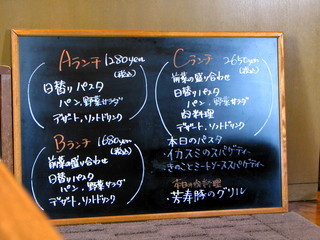 Aランチ 1280yen
(税込)
日替りパスタ
パン、野菜サラダ
デザート、ソフトドリンク
Bランチ 1680yen
(税込)
前菜の盛り合わせ
日替りパスタ
パン、野菜サラダ
デザート、ソフトドリンク
Cランチ 2650yen
(税込)
前菜の盛り合わせ
日替りパスタ
パン、野菜サラダ
肉料理
デザート、ソフトドリンク
本日のパスタ
・イカスミのスパゲティー
・きのことミートソーススパゲティー
本日の肉料理
・芳寿豚のグリル